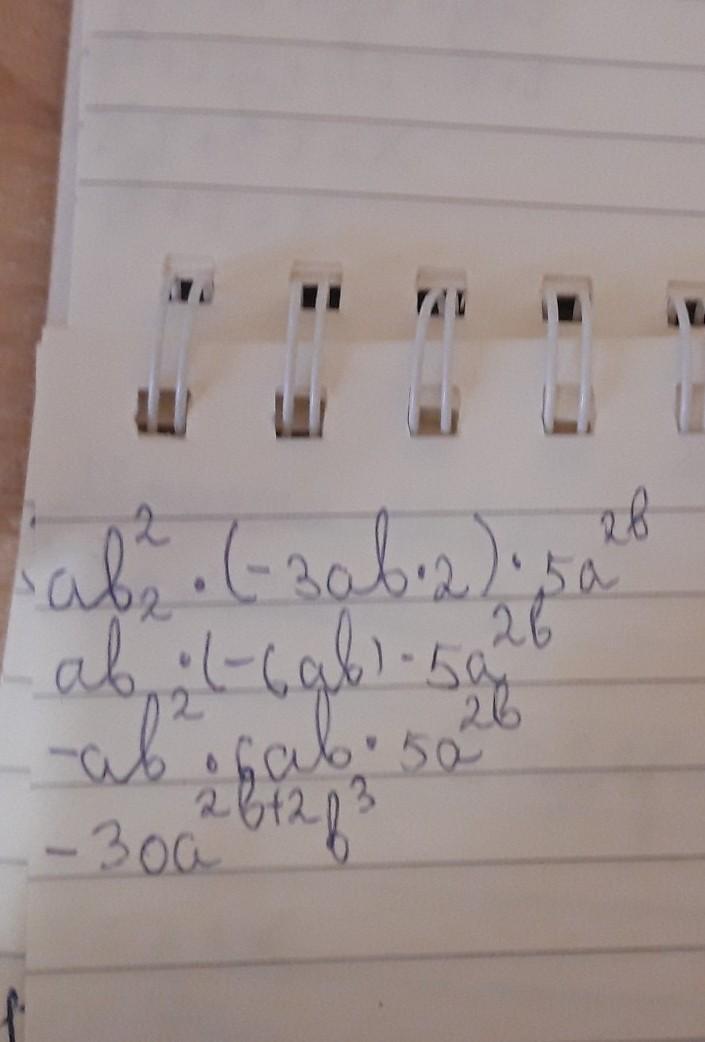 ab² · (-3ab·2) · 5a²ᵇ
ab² · (-6ab) · 5a²ᵇ
-ab² · 6ab · 5a²ᵇ
-30a²ᵇ⁺² b³